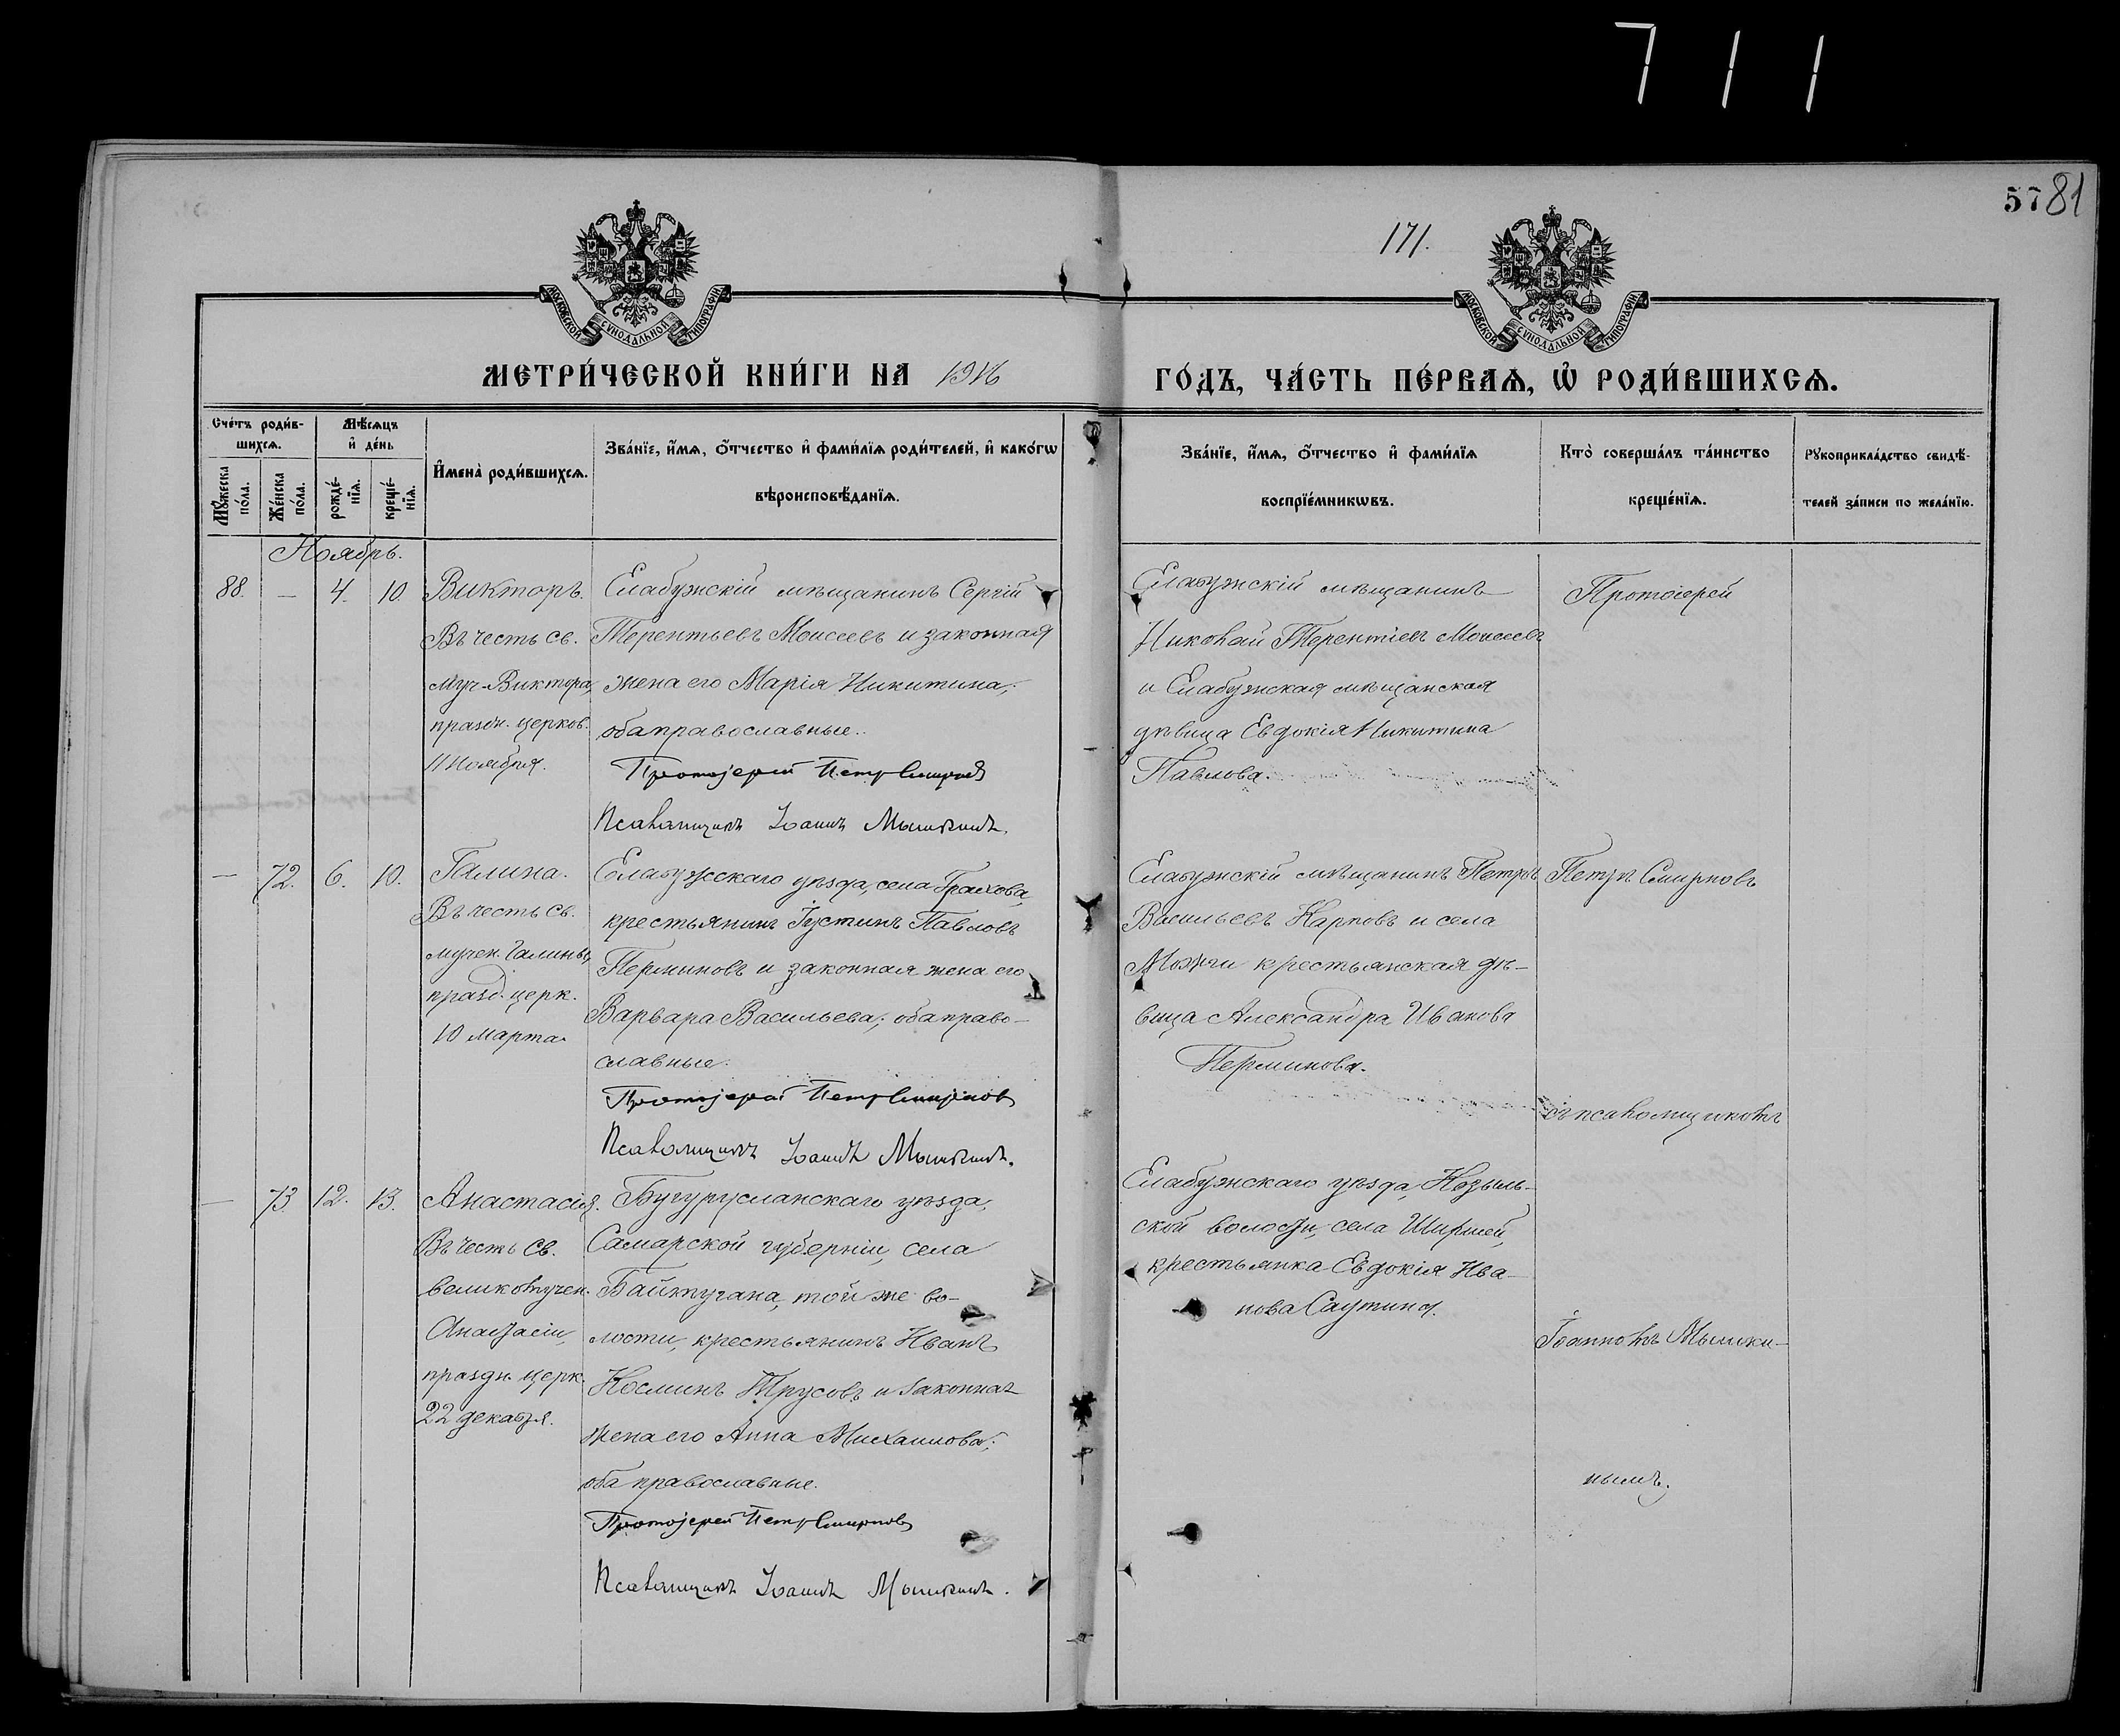 711
5781
171.
МОСКОВСКОЙ СУНОДАЛЬНОЙ ТИПОГРАФІИ
МОСКОВСКОЙ СУНОДАЛЬНОЙ ТИПОГРАФІИ
МЕТРИ́ЧЕСКОЙ КНИ́ГИ НА 1916
ГО́ДЪ, ЧА́СТЬ ПЕ́РВАѦ, Ѡ РОДИ́ВШИХСѦ.
Сче́тъ роди́в-
шихсѧ.
Мѣ́сяцъ
и҆ де́нь
Мꙋ́жеска
по́ла.
Же́нска
по́ла.
рожде́-
нїѧ.
креще́-
нїѧ.
И҆мена̀ роди́вшихсѧ.
Зва́нїе, и҆́мѧ, о҆́тчество и҆ фами́лїѧ роди́телей, и҆ како́гѡ
вѣроисповѣ́данїѧ.
Зва́нїе, и҆́мѧ, о҆́тчество и҆ фами́лїѧ
воспрїе́мникѡвъ.
Кто̀ соверша́лъ та́инство
креще́нїѧ.
Рꙋкоприкла́дство свидѣ́-
телей за́писи по жела́нїю.
Ноябрь.
88. — 4. 10. Викторъ.
Въ честь св.
муч. Виктора,
праздн. церков.
11 ноября.
Елабужскій мѣщанинъ Сергій
Терентьевъ Моисеевъ и законная
жена его Марія Никитина,
оба православные.
Протоіерей Петръ Смирновъ
Псаломщикъ Іоаннъ Мышкинъ.
Елабужскій мѣщанинъ
Николай Терентіевъ Моисеевъ
и Елабужская мѣщанская
дѣвица Евдокія Никитина
Павлова.
Протоіерей
— 72. 6. 10. Галина.
Въ честь св.
мучен. Галины,
празд. церк.
10 марта.
Елабужскаго уѣзда, села Грахова,
крестьянинъ Іустинъ Павловъ
Перминовъ и законная жена его
Варвара Васильева; оба право-
славные.
Протоіерей Петръ Смирновъ
Псаломщикъ Іоаннъ Мышкинъ.
Елабужскій мѣщанинъ Петръ
Васильевъ Карповъ и села
Можги крестьянская дѣ-
вица Александра Иванова
Перминова.
Петръ Смирновъ
съ псаломщикомъ
— 73. 12. 13. Анастасія.
Въ честь св.
великомучен.
Анастасіи,
праздн. церк.
22 декабря.
Бугурусланскаго уѣзда,
Самарской губерніи, села
Байтугана, той же во-
лости, крестьянинъ Иванъ
Косминъ Трусовъ и законная
жена его Анна Михаилова;
оба православные.
Протоіерей Петръ Смирновъ
Псаломщикъ Іоаннъ Мышкинъ.
Елабужскаго уѣзда,
ской волости, села
крестьянка Евдокія Ива-
нова Саутина.
Іоанномъ Мышки-
нымъ.